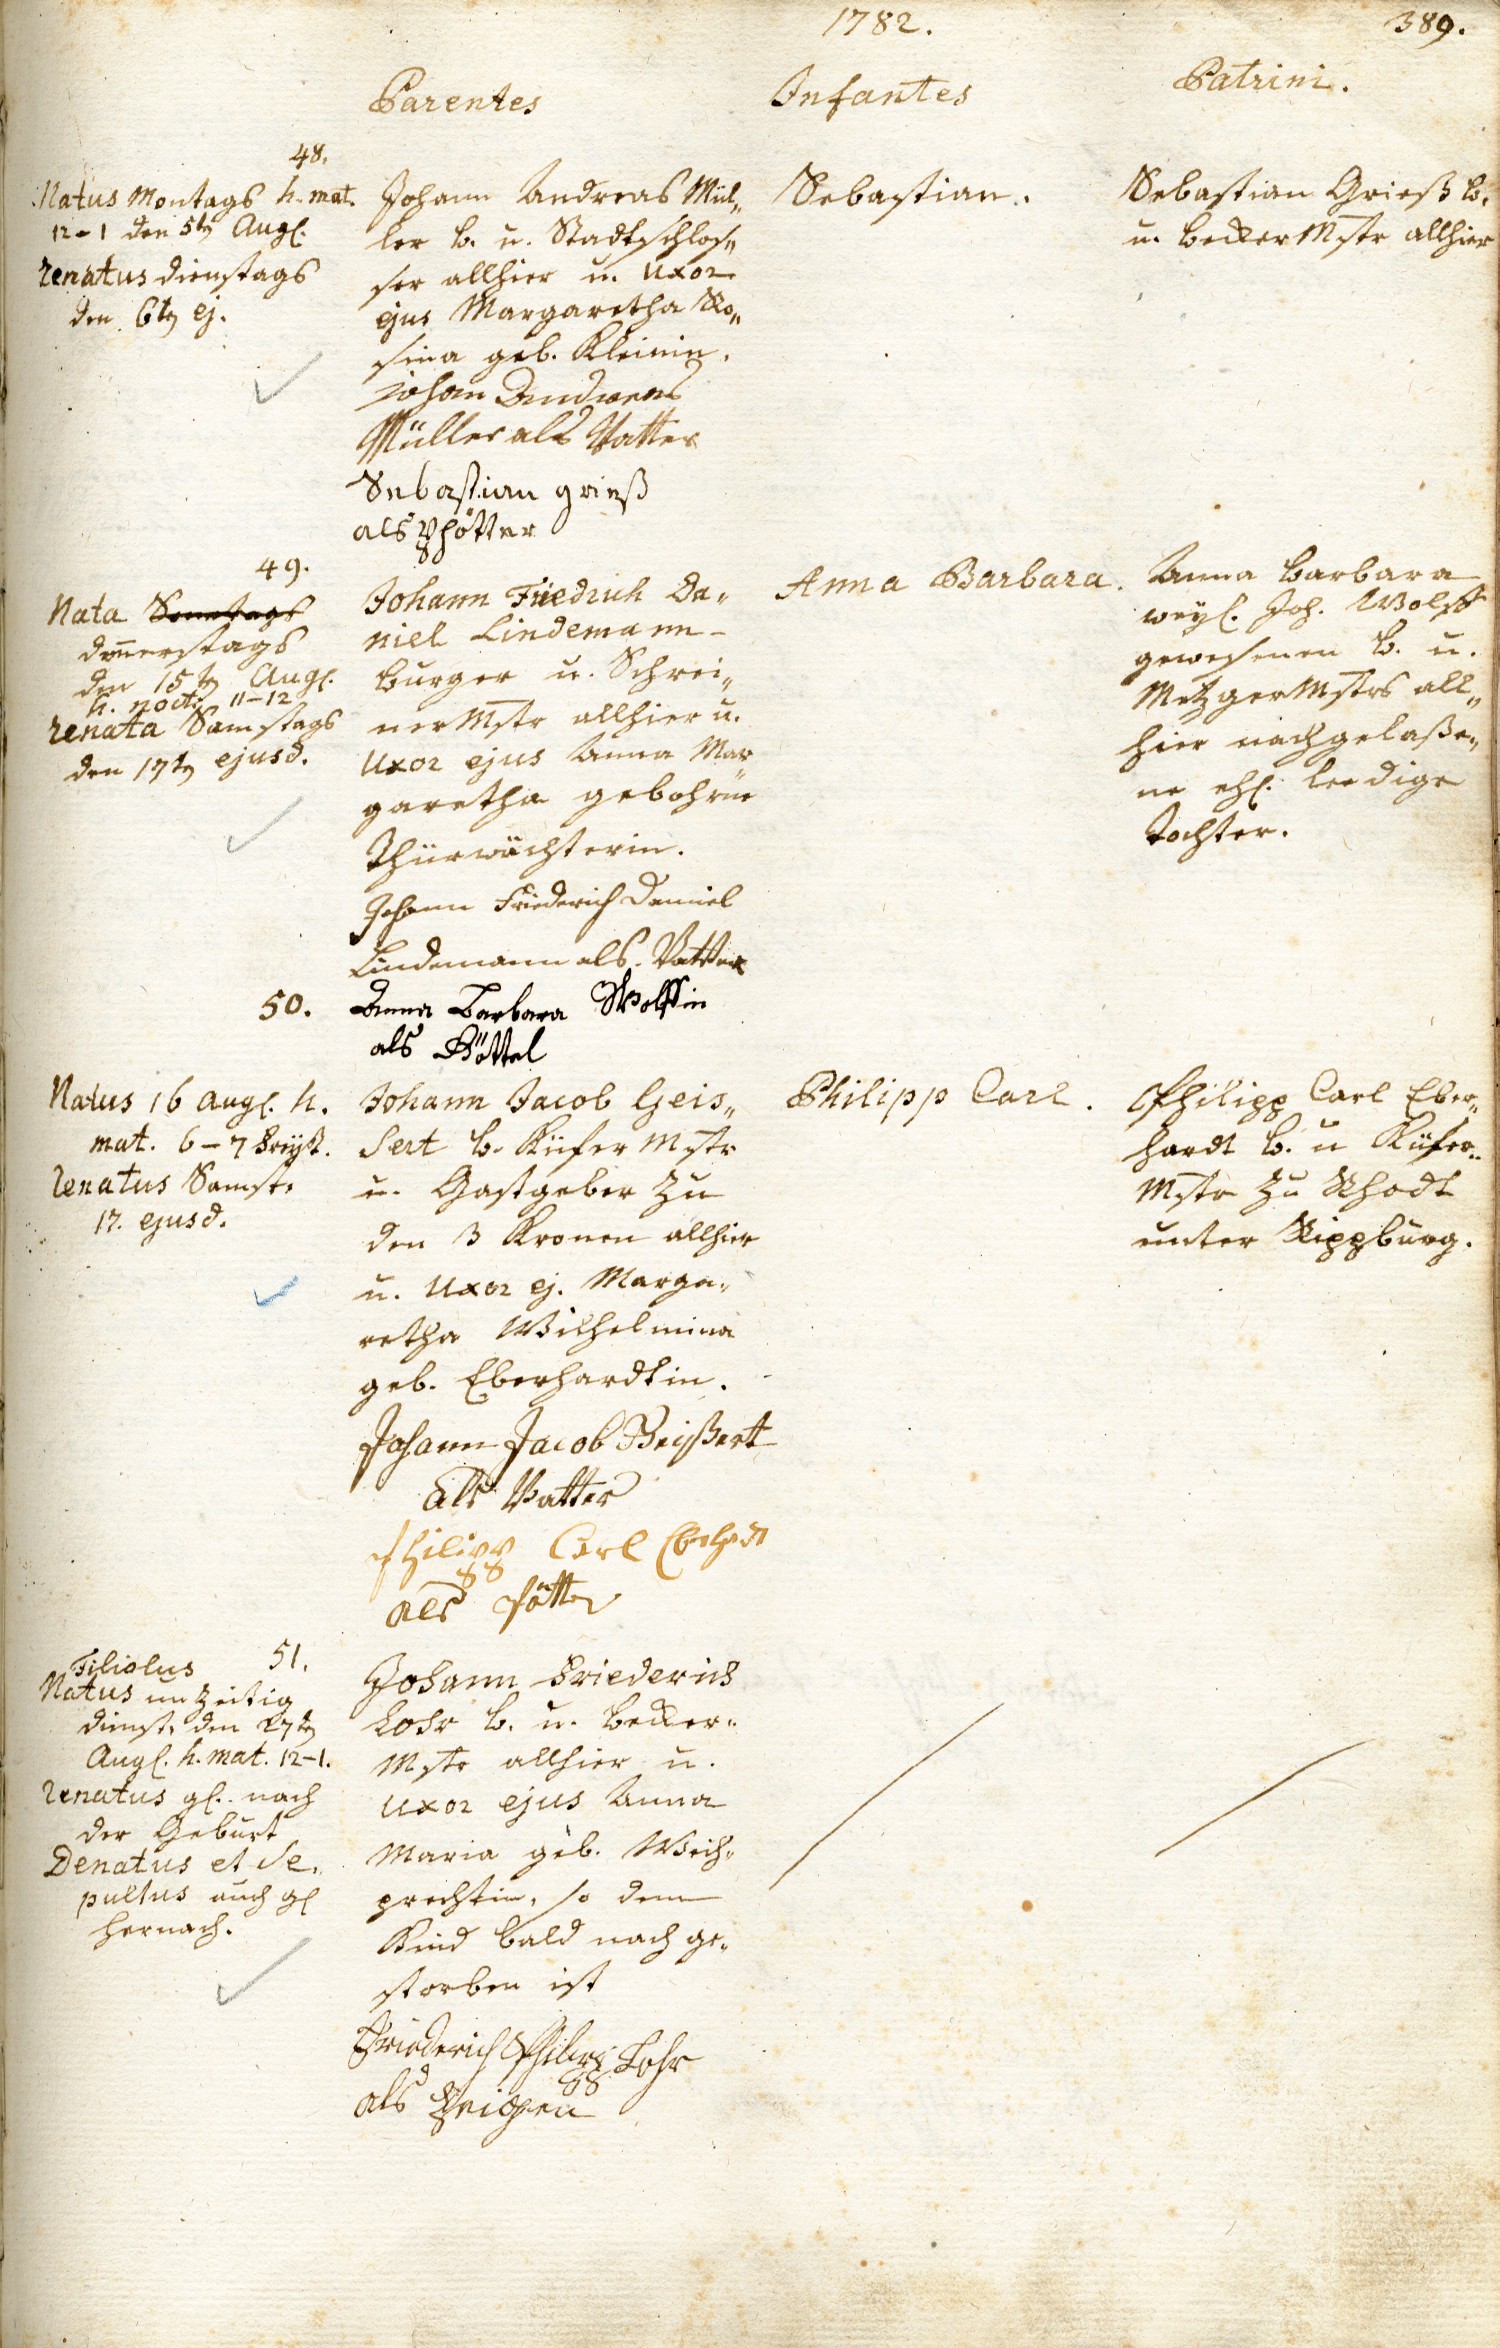 1782.
389.
Parentes
Infantes
Patrini.
48.
Natus Montags h. mat.
12-1 den 5t Aug.
renatus Dienstags
den 6t ej.
Johann Andreas Mül„
ler b. u. Stadtschlos„
ser allhier u. Uxor
ejus Margaretha Ro„
sina geb. Kleinin.
Johan Andreas
Müller als Vatter
Sebastian Grieß
als Pfötter
Sebastian.
Sebastian Grieß b.
u. becker Mstr allhier
49.
Nata Sonntags
donnerstags
den 15t Aug.
h. noct. 11-12
renata Samstags
den 17t ejusd.
Johann Friedrich Da„
niel Lindemann
burger u. Schrei„
ner Mstr allhier u.
Uxor ejus Anna Mar„
garetha gebohrne
Thürwächterin.
Johann Friederich Daniel
Lindemann als Vatter
Anna Barbara Wolffin
als Göttel
Anna Barbara.
Anna Barbara
weyl. Joh. Wolff
gewesenen b. u.
Metzger Mstrs all„
hier nachgelaße„
ne ehl. leedige
Tochter.
50.
Natus 16 Aug. h.
mat. 6-7 freyt.
renatus Samst.
17. ejusd.
Johann Jacob Geis„
sert b. Küfer Mstr
u. Gastgeber zu
den 3 Kronen allhier
u. Uxor ej. Marga„
retha Wilhelmina
geb. Eberhardtin.
Johann Jacob Geißert
als Vatter
Philipp Carl Eberhardt
als Pötter
Philipp Carl.
Philipp Carl Eber„
hardt b. u Küfer„
Mstr zu Rhodt
unter Rippburg.
51.
Filiolus
Natus unzeitig
dienst. den 27t
Aug. h. mat. 12-1.
renatus gl. nach
der Geburt
Denatus et se„
pultus auch gl
hernach.
Johann Friederich
Lohr b. u. becker„
Mstr allhier u.
Uxor ejus Anna
Maria geb. Weich„
prechtin, so dem
Kind bald nach ge„
storben ist
Friederich Philipp Lohr
als Zeigen